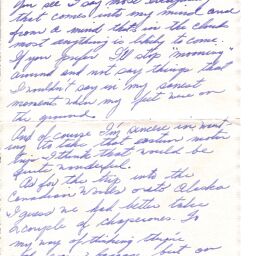 You see I say most everything
that comes into my mind and
from a mind that's in the clouds
most anything is likely to come.
If you prefer I'll stop "mooning"
around and not say things that
I wouldn't say in my sanest
moments when my feet were on
the ground.
And of course I'm sincere in want-
ing to take that eastern motor
trip. I think that would be
quite wonderful.
As for the trip into the
Canadian Wilds or to Alaska
I guess we had better take
a couple of chaperones. In
my way of thinking they're
but on